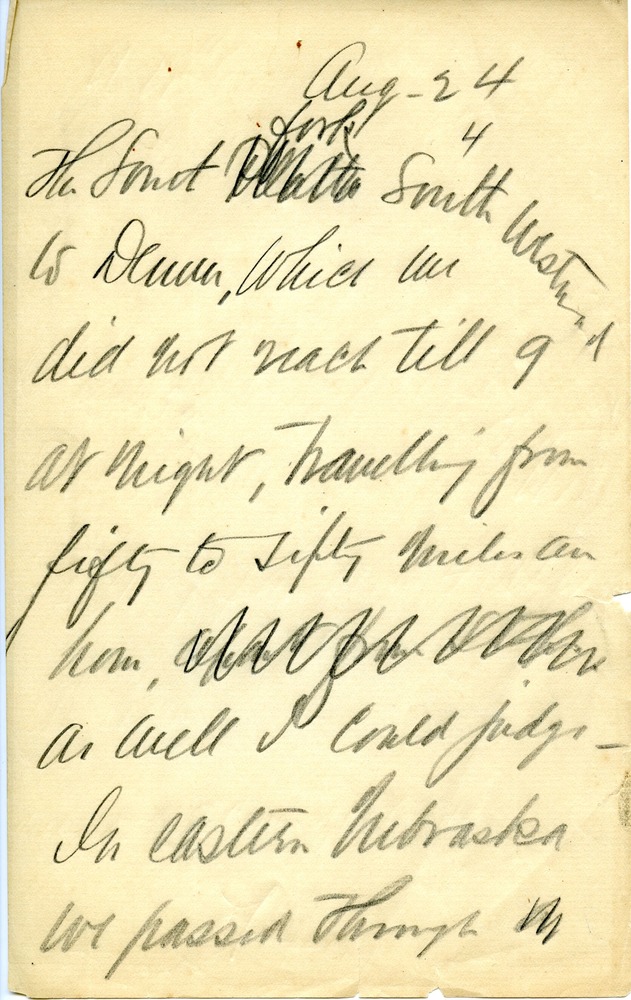 Aug - 24
4
fork
The South Platte South Westward
to Denver, which we
did not reach till 9
at night, travelling from
fifty to sixty miles an
hour,
as well I could judge -
In eastern Nebraska
we passed through